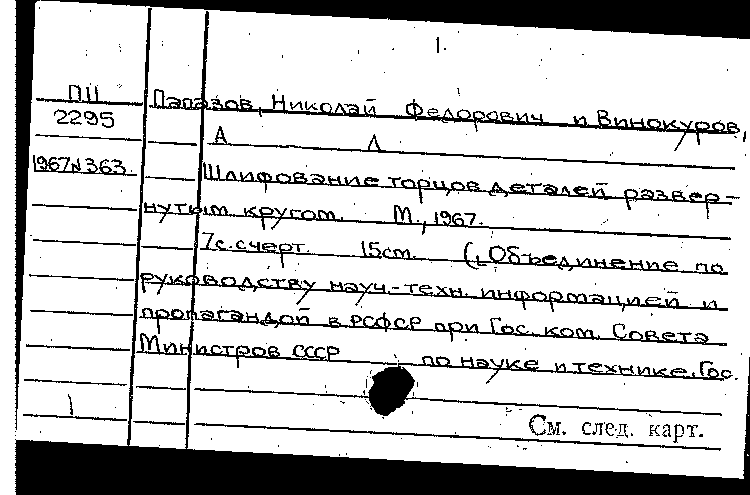 1.
ПII Папазов, Николай Федорович и Винокуров,
2295
А Л
1967 N 363. Шлифование торцов деталей развер-
нутым кругом. М, 1967.
7с. с черт. 15 cm. (Объединение по
руководству науч.-техн. информацией и
пропагандой в РСФСР при Гос. ком. Совета
Министров СССР по науке и технике. Гос.
См. след. карт.